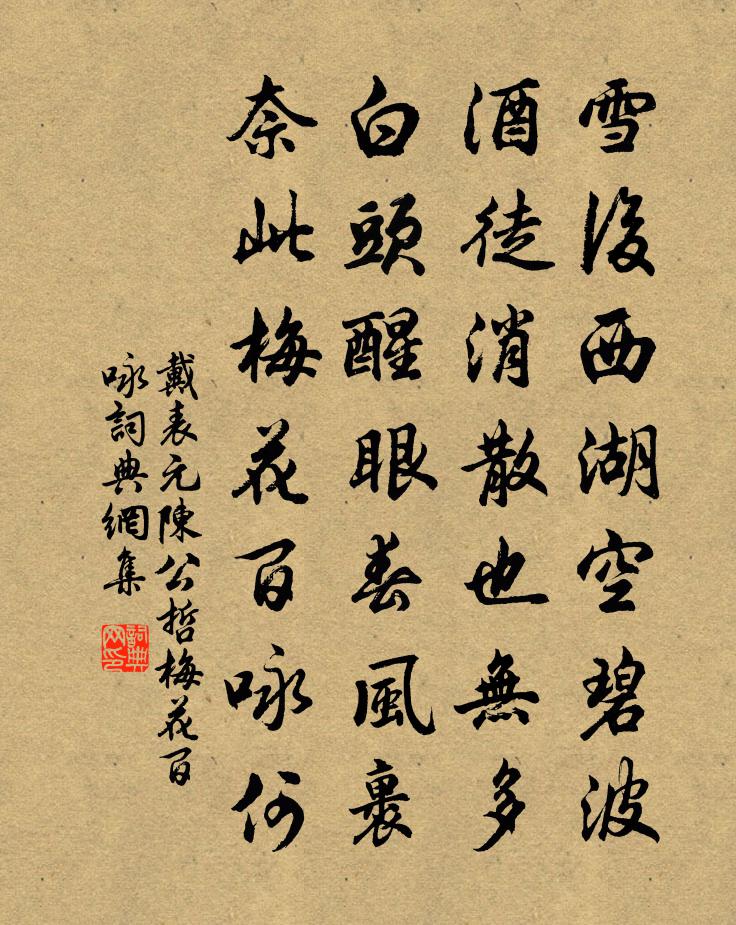 雪後西湖空碧波
酒徒消散也無多
白頭醒眼春風裏
奈此梅花百咏何
戴表元陳公哲梅花百
咏詞典網集
詞典
网印